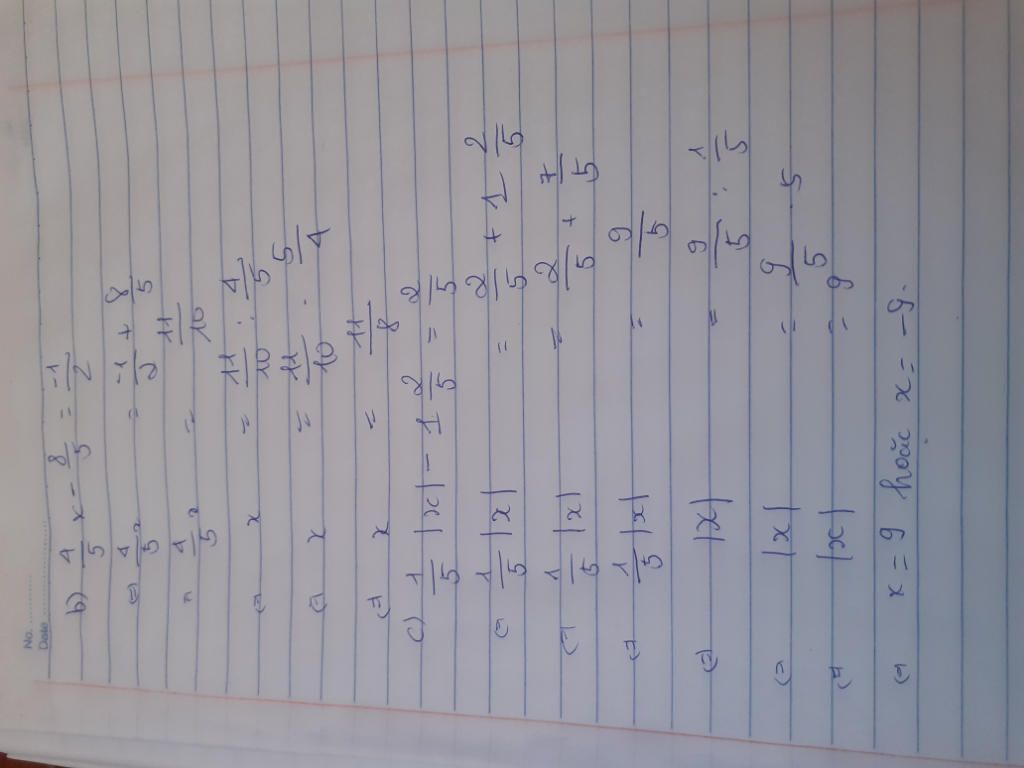 No. ..........
Date ....................
b) 4/5 x - 8/5 = -1/2
⇔ 4/5 x = -1/2 + 8/5
= 4/5 x = 11/10
⇔ x = 11/10 : 4/5
⇔ x = 11/10 . 5/4
⇔ x = 11/8
c) 1/5 |x| - 1 2/5 = 2/5
⇔ 1/5 |x| = 2/5 + 1 2/5
⇔ 1/5 |x| = 2/5 + 7/5
⇔ 1/5 |x| = 9/5
⇔ |x| = 9/5 : 1/5
⇔ |x| = 9/5 . 5
⇔ |x| = 9
⇔ x = 9 hoặc x = -9.